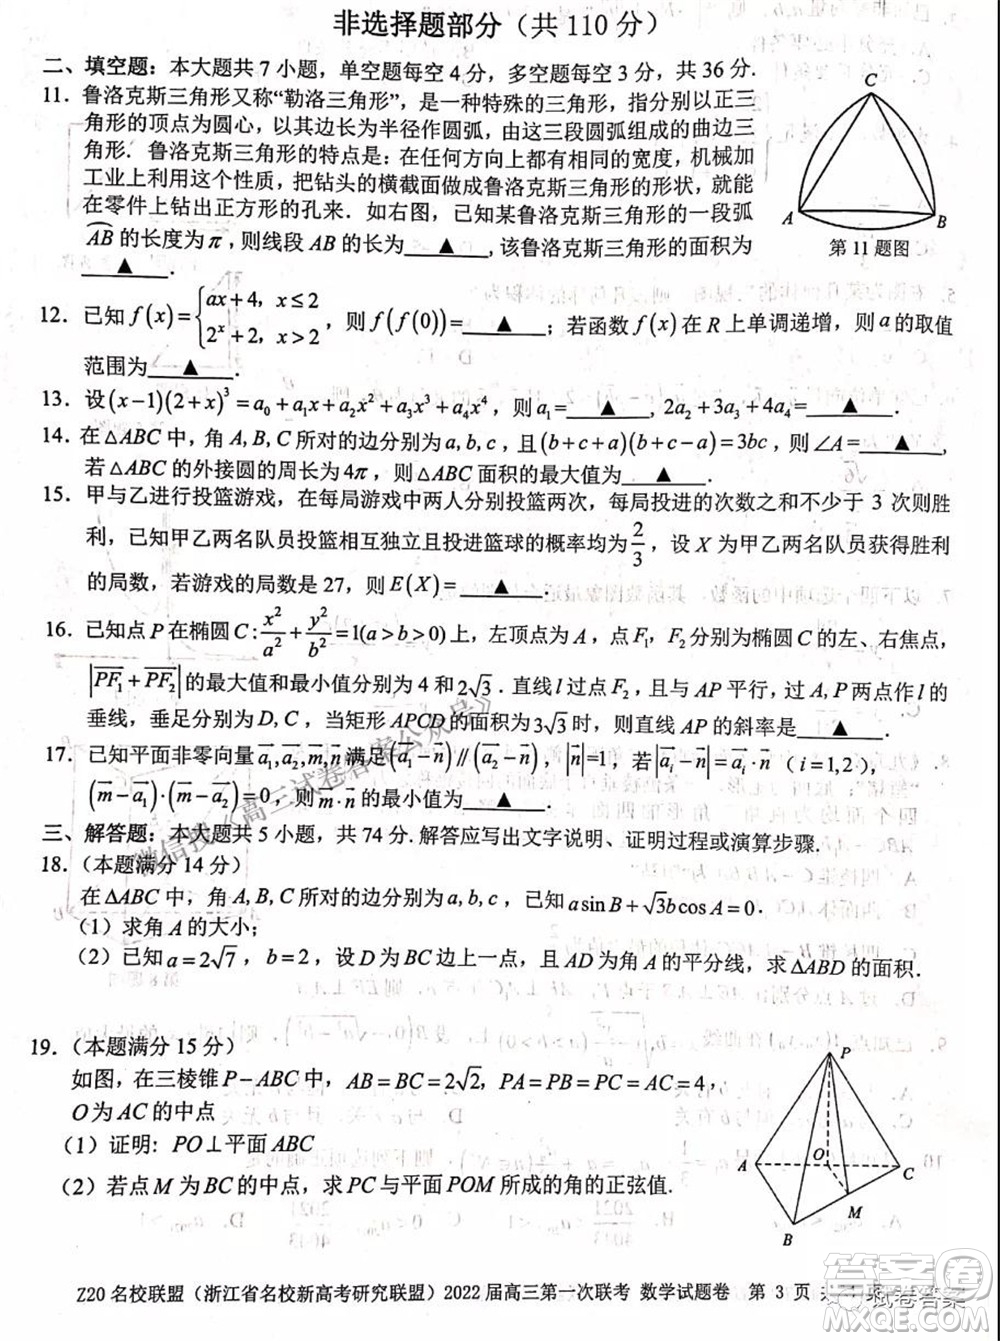 非选择题部分（共 110 分）
二、填空题：本大题共 7 小题，单空题每空 4 分，多空题每空 3 分，共 36 分.
11．鲁洛克斯三角形又称“勒洛三角形”，是一种特殊的三角形，指分别以正三
角形的顶点为圆心，以其边长为半径作圆弧，由这三段圆弧组成的曲边三
角形．鲁洛克斯三角形的特点是：在任何方向上都有相同的宽度，机械加
工业上利用这个性质，把钻头的横截面做成鲁洛克斯三角形的形状，就能
在零件上钻出正方形的孔来．如右图，已知某鲁洛克斯三角形的一段弧
AB 的长度为π，则线段 AB 的长为 ▲ ,该鲁洛克斯三角形的面积为
▲ .
C
A
B
第 11 题图
12．已知 f(x)={ax+4，x≤2
2^x+1，x>2，则 f(f(0))= ▲ ；若函数 f(x) 在 R 上单调递增，则 a 的取值
范围为 ▲ .
13．设(x−1)(2+x)^3=a₀+a₁x+a₂x²+a₃x³+a₄x⁴，则 a₁= ▲ , 2a₂+3a₃+4a₄= ▲ .
14．在△ABC 中，角 A,B,C 所对的边分别为 a,b,c，且(b+c+a)(b+c−a)=3bc，则∠A= ▲ ,
若△ABC 的外接圆的周长为 4π，则△ABC 面积的最大值为 ▲ .
15．甲与乙进行投篮游戏，在每局游戏中两人分别投篮两次，每局投进的次数之和不少于 3 次则胜
利，已知甲乙两名队员投篮相互独立且投进篮球的概率均为2/3，设 X 为甲乙两名队员获得胜利
的局数，若游戏的局数是 27，则 E(X)= ▲ .
16．已知点 P 在椭圆 C:x²/a²+y²/b²=1(a>b>0)上，左顶点为 A，点 F₁，F₂ 为椭圆 C 的左、右焦点，
|PF₁+PF₂|的最大值和最小值分别为 4 和 2√3．直线 l 过点 F₂，且与 AP 平行，过 A,P 两点作 l 的
垂线，垂足分别为 D,C，当矩形 APCD 的面积为 3√3 时，则直线 AP 的斜率是 ▲ .
17．已知平面非零向量 a₁,a₂,m,n 满足(a₁−n)∥(a₂−n)，|n|=1，若|a_i|=a_i·n（i=1,2），
(m−a₁)·(m−a₂)=0，则 m·n 的最小值为 ▲ .
三、解答题：本大题共 5 小题，共 74 分.解答应写出文字说明、证明过程或演算步骤.
18．（本题满分 14 分）
在△ABC 中，角 A,B,C 所对的边分别为 a,b,c，已知 asinB+√3bcosA=0.
（1）求角 A 的大小；
（2）已知 a=2√7，b=2，设 D 为 BC 边上一点，且 AD 为角 A 的平分线，求△ABD 的面积.
19．（本题满分 15 分）
如图，在三棱锥 P−ABC 中，AB=BC=2√2，PA=PB=PC=AC=4，
O 为 AC 的中点
（1）证明：PO⊥平面 ABC
（2）若点 M 为 BC 的中点，求 PC 与平面 POM 所成的角的正弦值.
P
A
O
C
M
B
微信搜《高三试卷答案公众号》
Z20 名校联盟（浙江省名校新高考研究联盟）2022 届高三第一次联考 数学试题卷 第 3 页
试卷答案